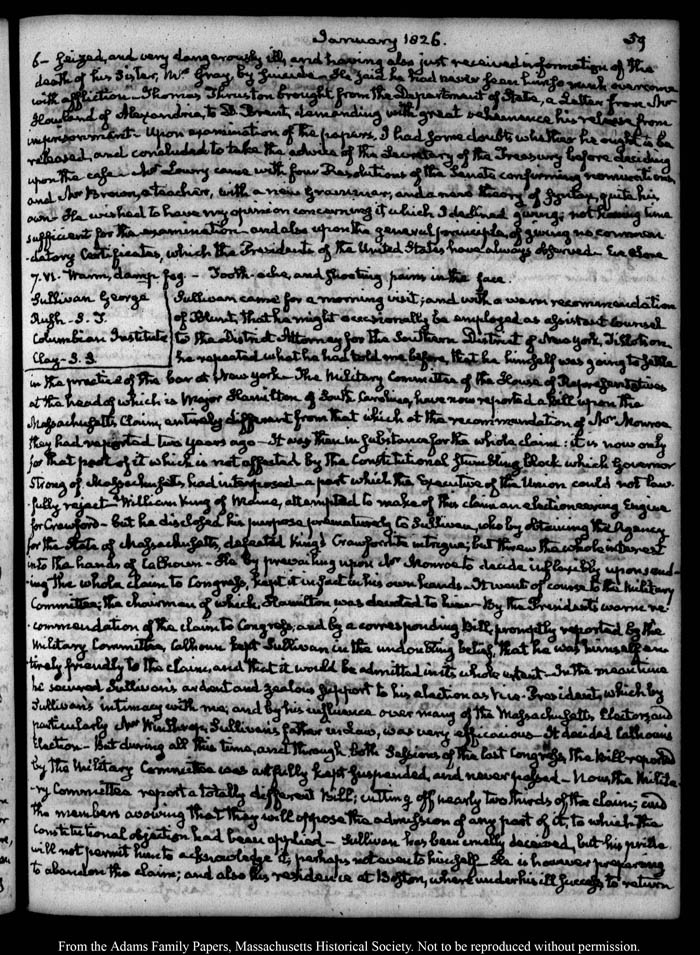 January 1826. 39
6— seized, and very dangerously ill, and having also just received information of the
death of his Sister, Mrs Gray, by Suicide— He said he had never seen him so much overcome
with affliction— Thomas Thruston brought from the Department of State, a Letter from Mr
Howland of Alexandria, to D. Brent, demanding with great vehemence his release from
imprisonment. Upon examination of the papers, I had some doubts whether he ought to be
released, and concluded to take the advice of the Secretary of the Treasury before deciding
upon the case. Mr Lowry came with four Resolutions of the Senate confirming nominations,
and Mr Brown, a teacher, with a new Grammar, and a new theory of Syntax, quite his
own. He wished to have my opinion concerning it which I declined giving; not having time
sufficient for the examination— and also upon the general principle, of giving no commen-
datory Certificates, which the Presidents of the United States have always observed— Eve alone
7. VI. Warm, damp fog— Tooth-ache, and shooting pains in the face.
Sullivan George
Rush— S. T.
Columbian Institute
Clay— S. S.
Sullivan came for a morning visit; and with a warm recommendation
of Blunt, that he might occasionally be employed as assistant Counsel
to the District Attorney for the Southern District of New-York, Tillotson.
he repeated what he had told me before, that he himself was going to settle
in the practice of the bar at New-York— The Military Committee of the House of Representatives
at the head of which is Major Hamilton of South Carolina, have now reported a bill upon the
Massachusetts Claim, entirely different from that which at the recommendation of Mr Monroe
they had reported two years ago— It was then in substance for the whole claim: it is now only
for that part of it which is not affected by the Constitutional stumbling block which Governor
Strong of Massachusetts, had interposed— a part which the Executive of the Union could not law-
fully reject— William King of Maine, attempted to make of this claim an electioneering Engine
for Crawford— but he disclosed his purpose prematurely to Sullivan, who by obtaining the Agency
for the State of Massachusetts, defeated King's Crawfordite intrigue; but threw the whole interest
into the hands of Calhoun— He by prevailing upon Mr Monroe to decide inflexibly upon send-
ing the whole claim to Congress, kept it in fact in his own hands— It went of course to the Military
Committee; the chairman of which, Hamilton was devoted to him— By the President's warm re-
commendation of the claim to Congress, and by a corresponding Bill, promptly reported by the
Military Committee, Calhoun kept Sullivan in the undoubting belief, that he was himself en-
tirely friendly to the claim, and that it would be admitted in its whole extent— In the mean time
he secured Sullivan's ardent and zealous support to his election as Vice-President, which by
Sullivan's intimacy with me, and by his influence over many of the Massachusetts Electors, and
particularly Mr Winthrop, Sullivan's father in Law, was very efficacious— It decided Calhoun's
Election— But during all this time, and through both Sessions of the last Congress, the Bill reported
by the Military Committee was artfully kept suspended, and never passed— Now the Milita-
ry Committee report a totally different Bill; cutting off nearly two thirds of the claim; and
the members avowing that they will oppose the admission of any part of it, to which the
Constitutional objection had been applied— Sullivan has been cruelly deceived, but his pride
will not permit him to acknowledge it, perhaps not even to himself— He is however preparing
to abandon the claim; and also his residence at Boston, where under his ill success to return
From the Adams Family Papers, Massachusetts Historical Society. Not to be reproduced without permission.